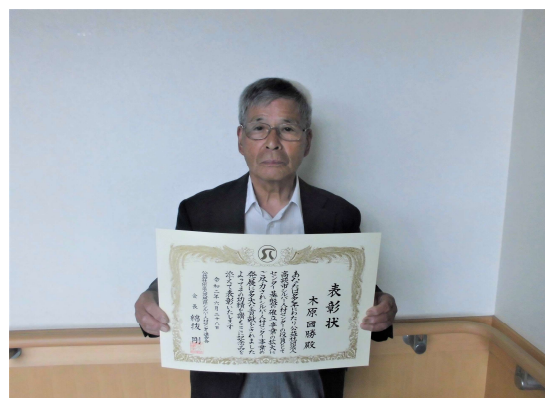 表彰状
木原國勝殿
あなたは多年にわたり公益社団法人
シルバー人材センターの役員として
センター基盤の確立と事業の拡大に
ご尽力されシルバー人材センター事業の
発展に多大な貢献をされました
よってその功績を讃えここに記念品を
添えて表彰いたします
令和二年六月
シルバー人材センター連合会
会長 綿抜 剛